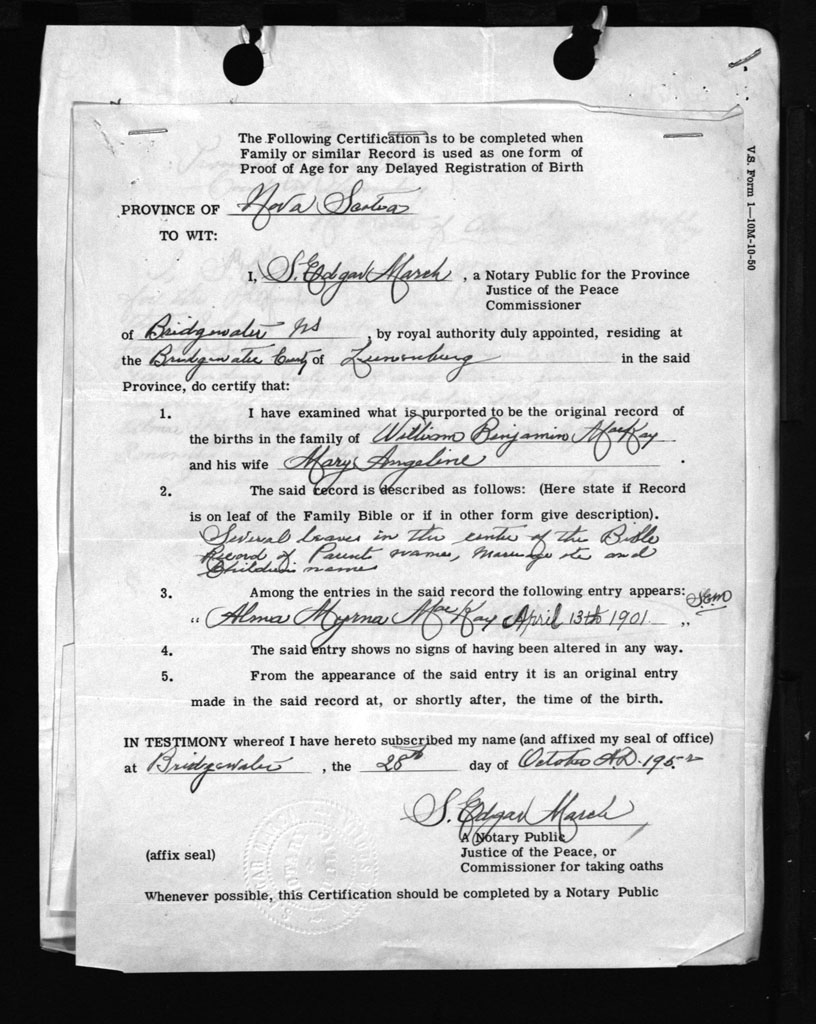 The Following Certification is to be completed when
Family or similar Record is used as one form of
Proof of Age for any Delayed Registration of Birth
V.S. Form 1—10M-10-50
PROVINCE OF Nova Scotia
TO WIT:
I, S. Edgar March, a Notary Public for the Province
Justice of the Peace
Commissioner
of Bridgewater NS, by royal authority duly appointed, residing at
the Bridgewater County of Lunenburg in the said
Province, do certify that:
1. I have examined what is purported to be the original record of
the births in the family of William Benjamin MacKay
and his wife Mary Angeline.
2. The said record is described as follows: (Here state if Record
is on leaf of the Family Bible or if in other form give description).
Several leaves in the center of the Bible
Record of Parents names, marriage etc and
Childrens names
3. Among the entries in the said record the following entry appears:
" Alma Myrna MacKay April 13th 1901 " SEM
4. The said entry shows no signs of having been altered in any way.
5. From the appearance of the said entry it is an original entry
made in the said record at, or shortly after, the time of the birth.
IN TESTIMONY whereof I have hereto subscribed my name (and affixed my seal of office)
at Bridgewater, the 28th day of October A.D. 1952
S. Edgar March
A Notary Public
(affix seal) Justice of the Peace, or
Commissioner for taking oaths
Whenever possible, this Certification should be completed by a Notary Public